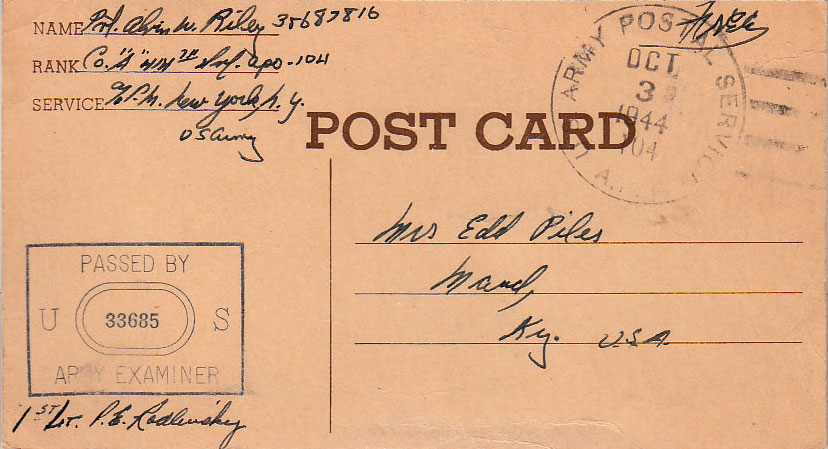 NAME Pvt. Alvis W. Riley 35687816
RANK Co. "A" 414th Inf. APO-104
SERVICE % P.M. New York, N.Y.
US Army
Free
POST CARD
U.S. ARMY POSTAL SERVICE
OCT
3
1944
104
A.P.
Mrs Edd Piles
Maud,
Ky. U.S.A.
PASSED BY
U 33685 S
ARMY EXAMINER
1st Lt. P.E.